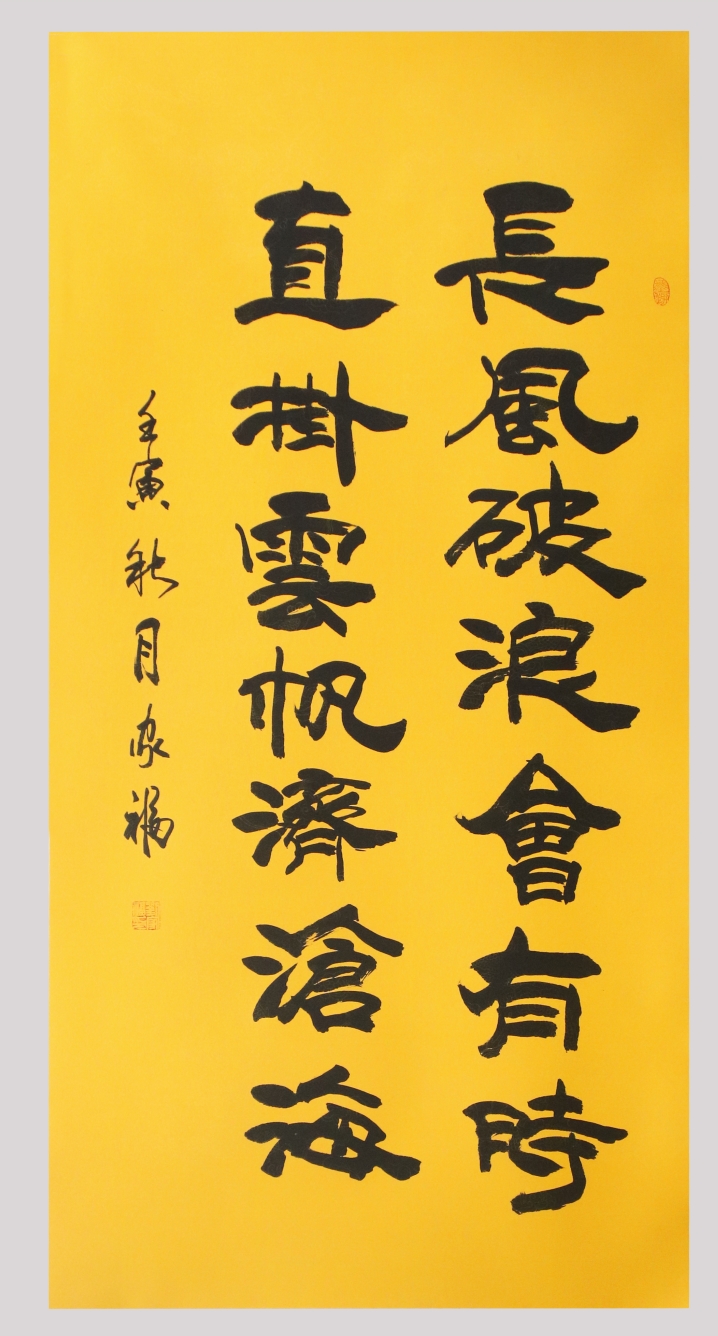 長風破浪會有時
直掛雲帆濟滄海
壬寅秋月家福